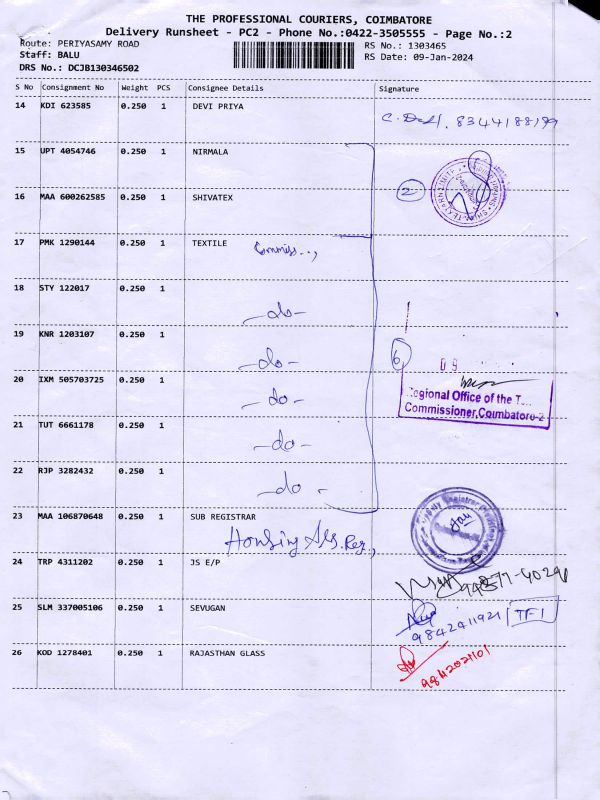 THE PROFESSIONAL COURIERS, COIMBATORE
Delivery Runsheet - PC2 - Phone No.:0422-3505555 - Page No.:2
Route: PERIYASAMY ROAD
RS No.: 1303465
Staff: BALU
RS Date: 09-Jan-2024
DRS No.: DCJB130346502
S No Consignment No Weight PCS Consignee Details Signature
14 KDI 623585 0.250 1 DEVI PRIYA
8344188199
15 UPT 4054746 0.250 1 NIRMALA
16 MAA 600262585 0.250 1 SHIVATEX
2
17 PMK 1290144 0.250 1 TEXTILE
Commiss..,
18 STY 122017 0.250 1
-do-
19 KNR 1203107 0.250 1
-do-
6
09
20 IXM 505703725 0.250 1
-do-
Regional Office of the
Commissioner, Coimbatore-2
21 TUT 6661178 0.250 1
-do-
22 RJP 3282432 0.250 1
-do-
23 MAA 106870648 0.250 1 SUB REGISTRAR
Housing Reg.,
24 TRP 4311202 0.250 1 JS E/P
25 SLM 337005106 0.250 1 SEVUGAN
9842411921 TF1
26 KOD 1278401 0.250 1 RAJASTHAN GLASS
9842021101